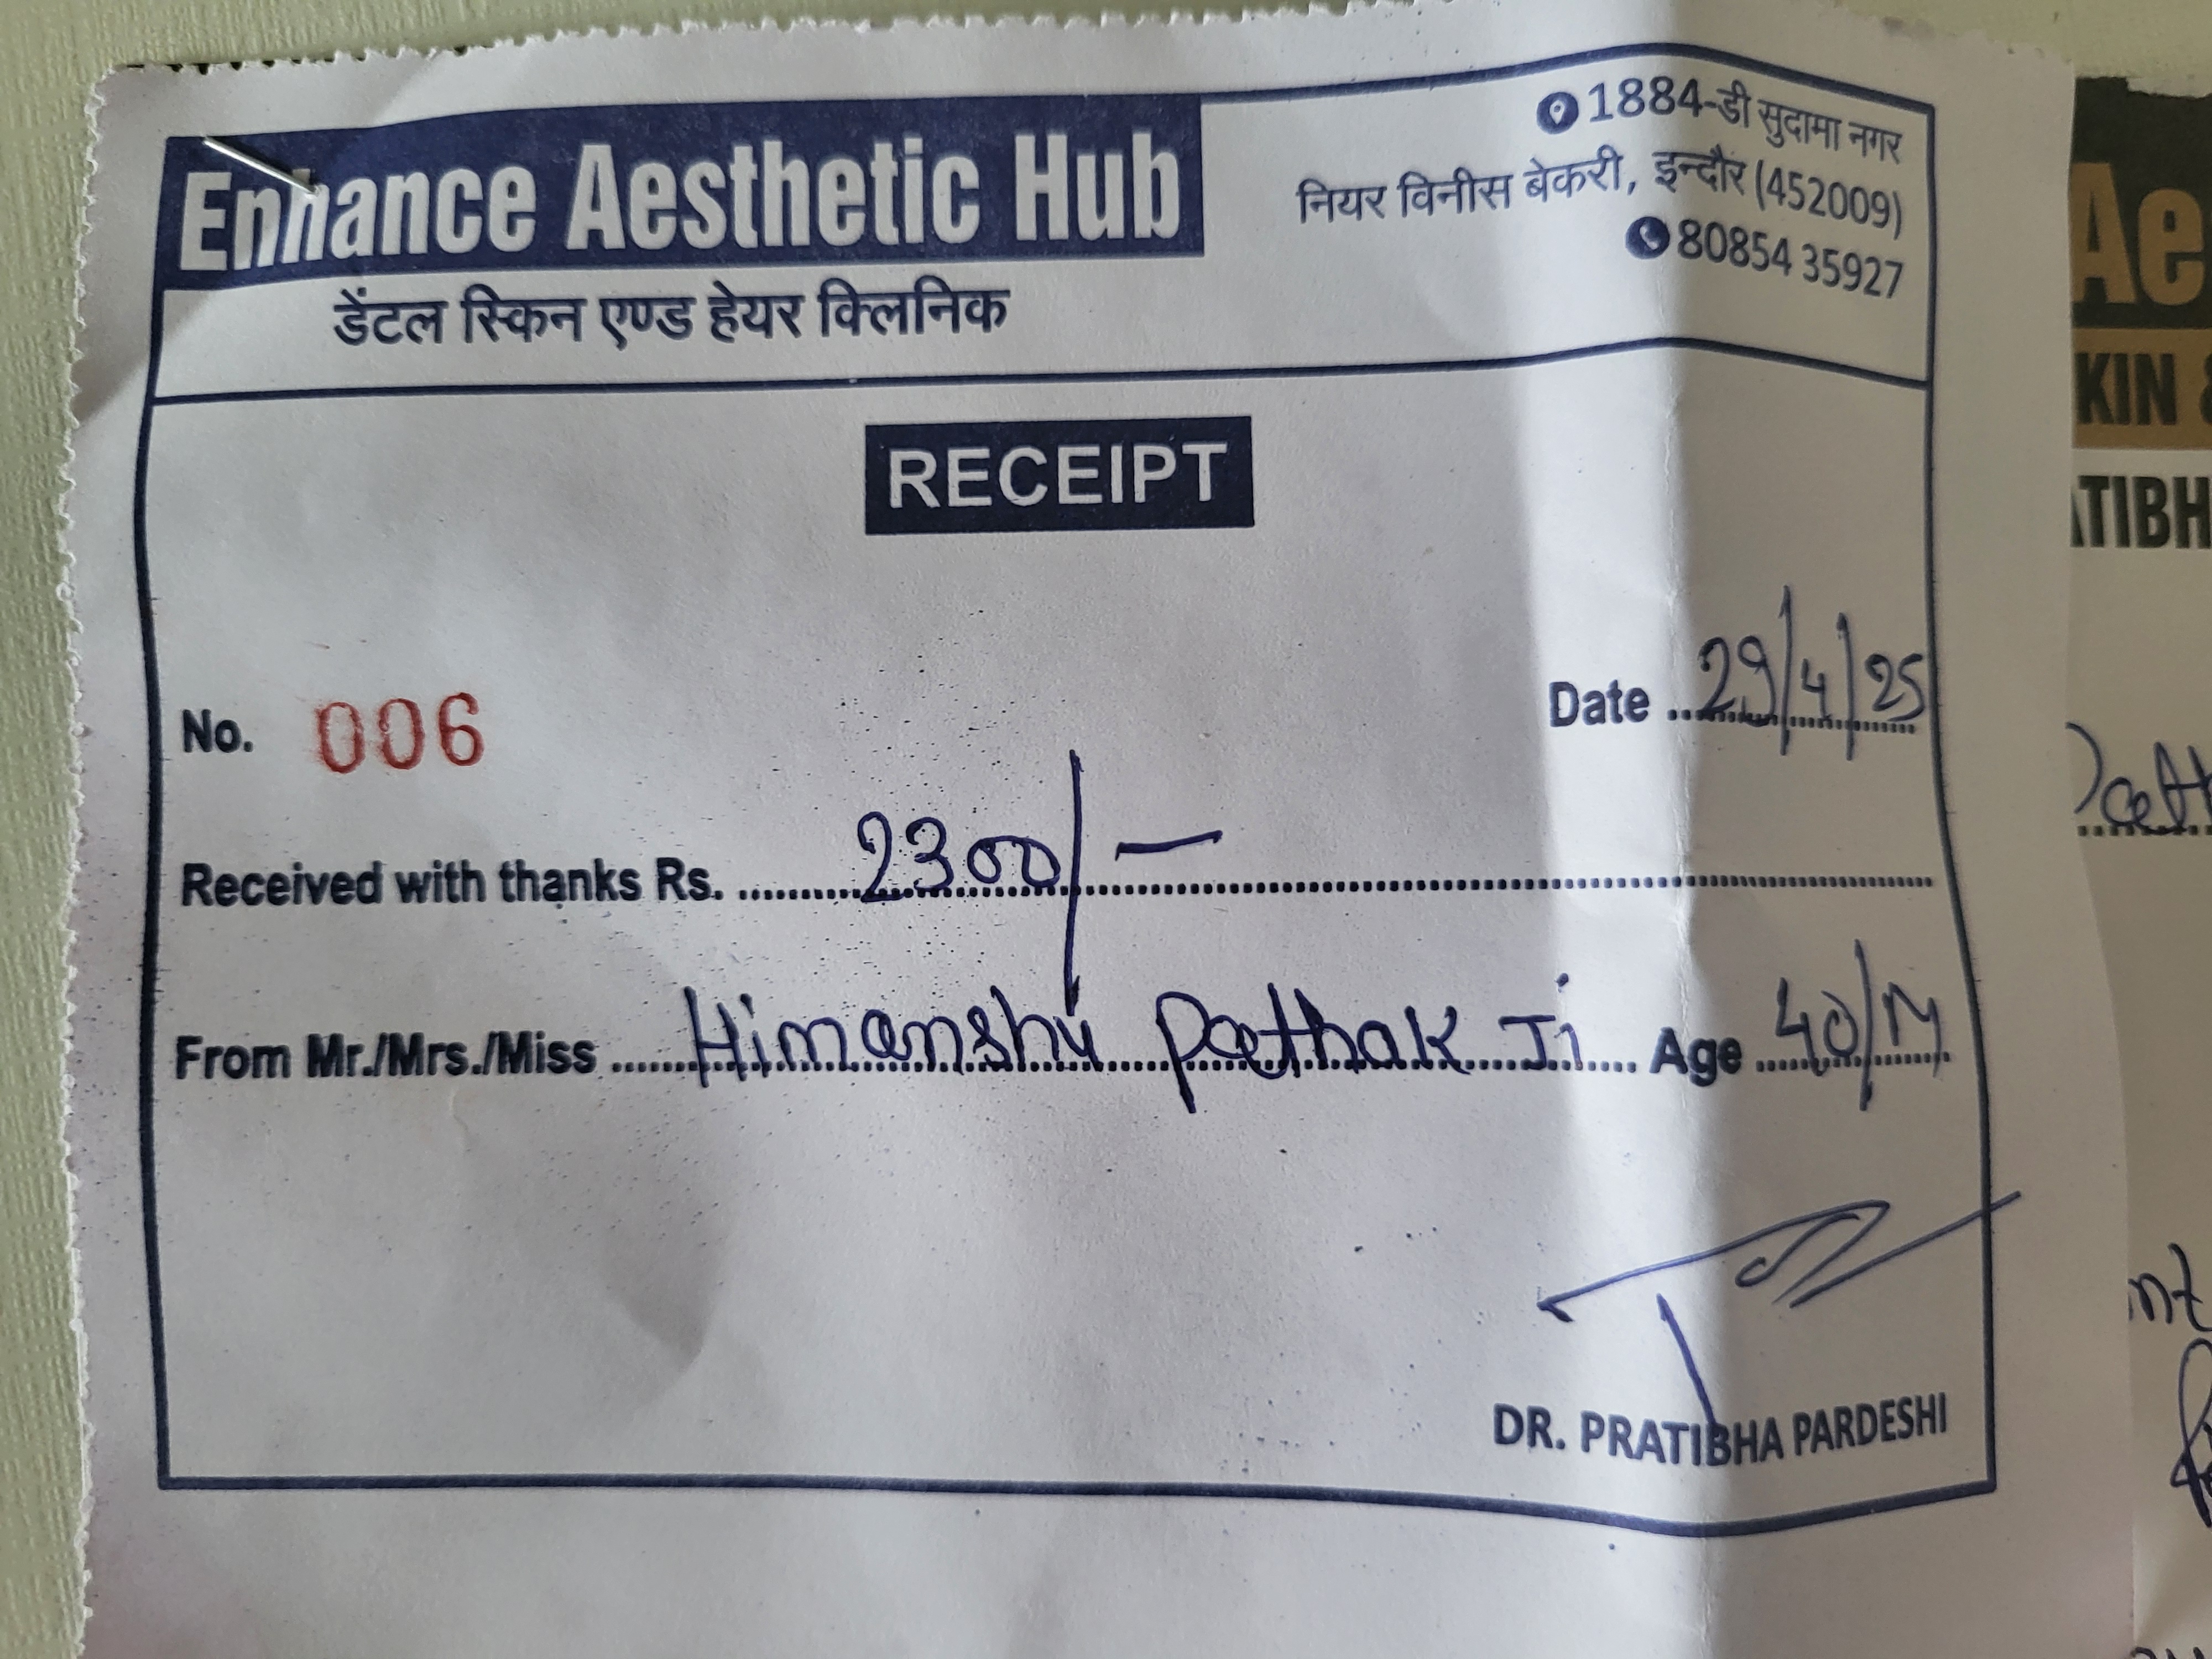 Enhance Aesthetic Hub
डेंटल स्किन एण्ड हेयर क्लिनिक
1884-डी सुदामा नगर
नियर विनीस बेकरी, इन्दौर (452009)
80854 35927
RECEIPT
No. 006 Date 29/4/25
Received with thanks Rs. 2300/-
From Mr./Mrs./Miss Himanshu Pathak Ji Age 40/M
DR. PRATIBHA PARDESHI
Ae
KIN &
ATIBH